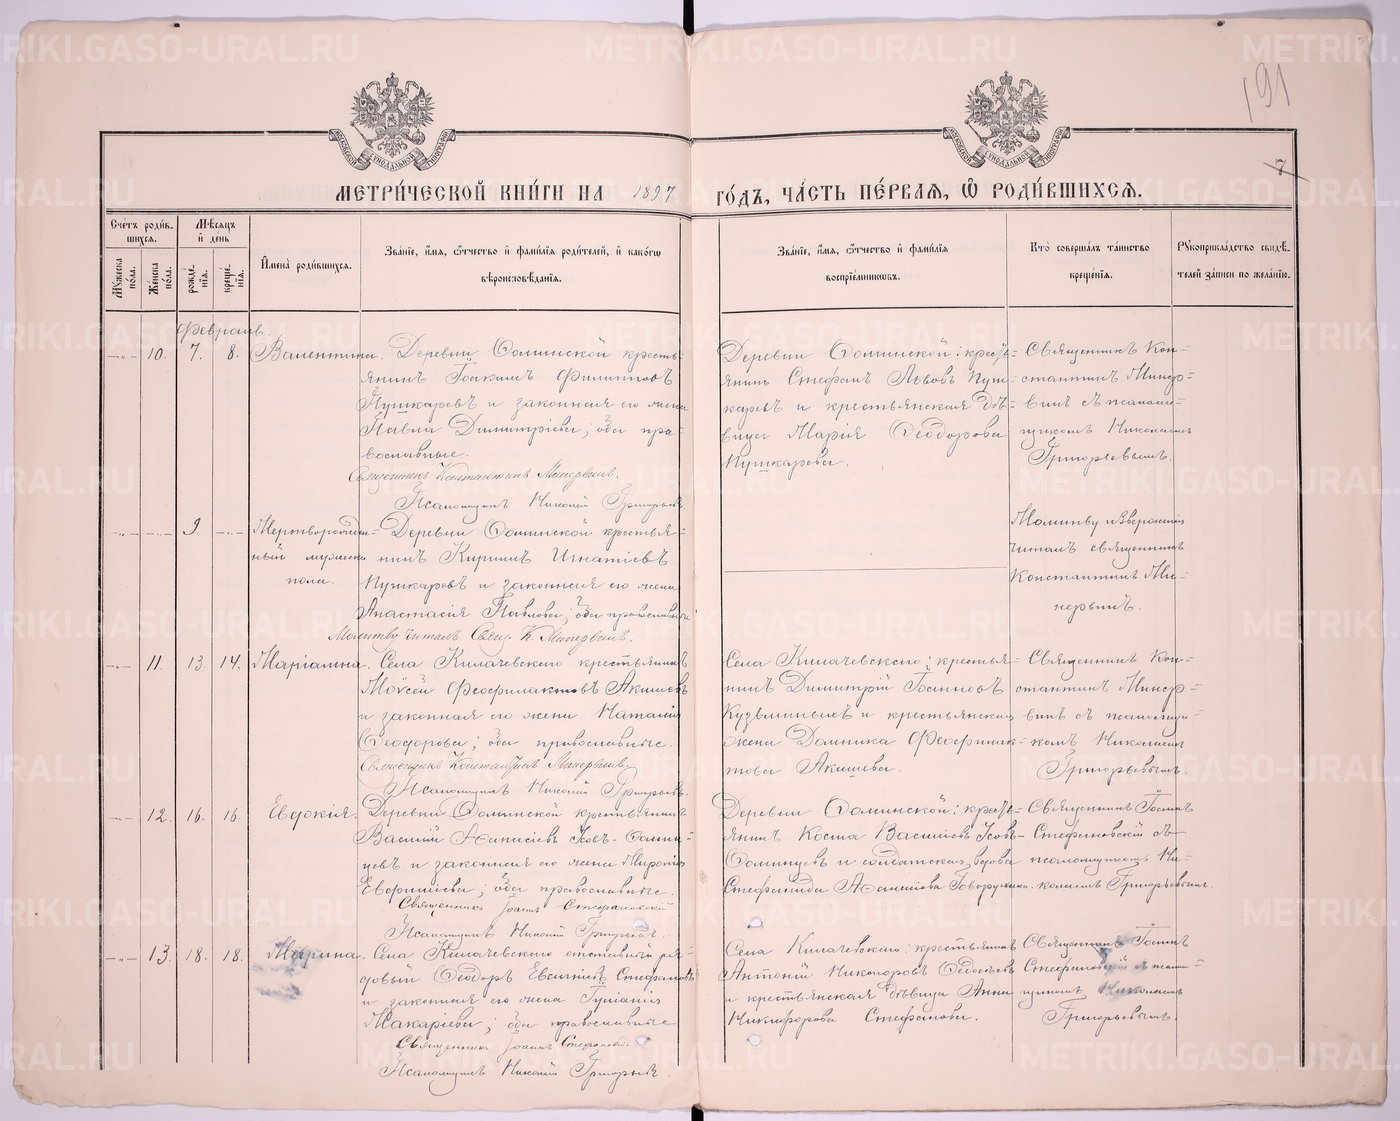 191
7
МОСКОВСКОЙ СѴНОДАЛЬНОЙ ТИПОГРАФІИ
МОСКОВСКОЙ СѴНОДАЛЬНОЙ ТИПОГРАФІИ
МЕТРИ́ЧЕСКОЙ КНИ́ГИ НА 1897 ГО́ДЪ, ЧА́СТЬ ПЕ́РВАЯ, Ѽ РОДИ́ВШИХСЯ.
Сче́тъ роди́в-
шихся.
Мꙋ́жеска по́ла.
Же́нска по́ла.
Мѣ́сяцъ и҆ де́нь
рожде́-
нїя.
креще́-
нїя.
И҆мена̀ роди́вшихся.
Зва́нїе, и҆́мя, ѻ҆́тчество и҆ фами́лїя роди́телей, и҆ како́гѡ
вѣроисповѣ́данїя.
Зва́нїе, и҆́мя, ѻ҆́тчество и҆ фами́лїя
воспрїе́мникѡвъ.
Кто̀ соверша́лъ та́инство
креще́нїя.
Рꙋкоприкла́дство свидѣ́-
телей за́писи по жела́нїю.
Февраль.
—„— 10. 7. 8. Валентина.
Деревни Ѳоминской кресть-
янинъ Іоакимъ Филипповъ
Пушкаревъ и законная его жена
Павла Димитріева; оба пра-
вославные.
Священникъ Константинъ Минервинъ.
Псаломщикъ Николай Григорьевъ
Деревни Ѳоминской: кресть-
янинъ Стефанъ Львовъ Пуш-
каревъ и крестьянская дѣ-
вица Марія Ѳеодорова
Пушкарева.
Священникъ Кон-
стантинъ Минер-
винъ съ псалом-
щикомъ Николаемъ
Григорьевымъ.
—„— —„— 9. —„—
Мертворожден-
ный мужска
пола.
Деревни Ѳоминской крестья-
нинъ Кириллъ Игнатіевъ
Пушкаревъ и законная его жена
Анастасія Павлова; оба православные
Молитву читалъ Свящ. К. Минервинъ.
Молитву
читалъ священникъ
Константинъ Ми-
нервинъ.
—„— 11. 13. 14. Маріамна.
Села Килачевскаго крестьянинъ
Моѵсей Феофилактовъ Акишевъ
и законная его жена Наталія
Ѳеодорова; оба православные.
Священникъ Константинъ Минервинъ.
Псаломщикъ Николай Григорьевъ.
Села Килачевскаго: крестья-
нинъ Димитрій Іоанновъ
Кузьминыхъ и крестьянская
жена Домника Феофилак-
това Акишева.
Священникъ Кон-
стантинъ Минер-
винъ съ псаломщи-
комъ Николаемъ
Григорьевымъ.
—„— 12. 16. 16. Евдокія.
Деревни Ѳоминской крестьянинъ
Василій Аѳанасіевъ Ѳомин-
цевъ и законная его жена
оба православные.
Священникъ Іоаннъ Стефановскій
Псаломщикъ Николай Григорьевъ.
Деревни Ѳоминской: кресть-
янинъ Косма Василіевъ
Ѳоминцевъ и солдатская вдова
Стефанида Аѳанасіева Говорухина.
Священникъ Іоаннъ
Стефановскій съ
псаломщикомъ Ни-
колаемъ Григорьевымъ.
—„— 13. 18. 18. Марина.
Села Килачевскаго отставный ря-
довый Ѳеодоръ Евсигніевъ Стефановъ
и законная его жена Іуліанія
Макаріева; оба православные
Священникъ Іоаннъ Стефановскій.
Псаломщикъ Николай Григорьевъ.
Села Килачевскаго: крестьянинъ
Антоній Никаноровъ Ѳедосѣевъ
и крестьянская дѣвица Анна
Никифорова Стефанова.
Священникъ Іоаннъ
Стефановскій съ псалом-
щикомъ Николаемъ
Григорьевымъ.
METRIKI.GASO-URAL.RU